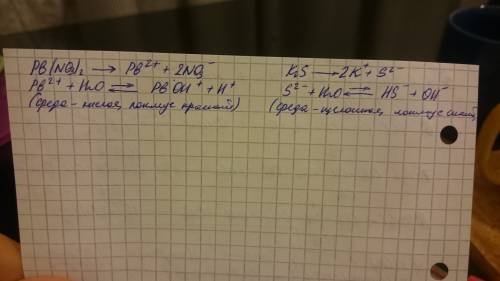 Pb(NO3)2 → Pb2+ + 2NO3-
Pb2+ + H2O ⇄ PbOH+ + H+
(среда - кислая, лакмус красный)
K2S → 2K+ + S2-
S2- + H2O ⇄ HS- + OH-
(среда - щелочная, лакмус синий)